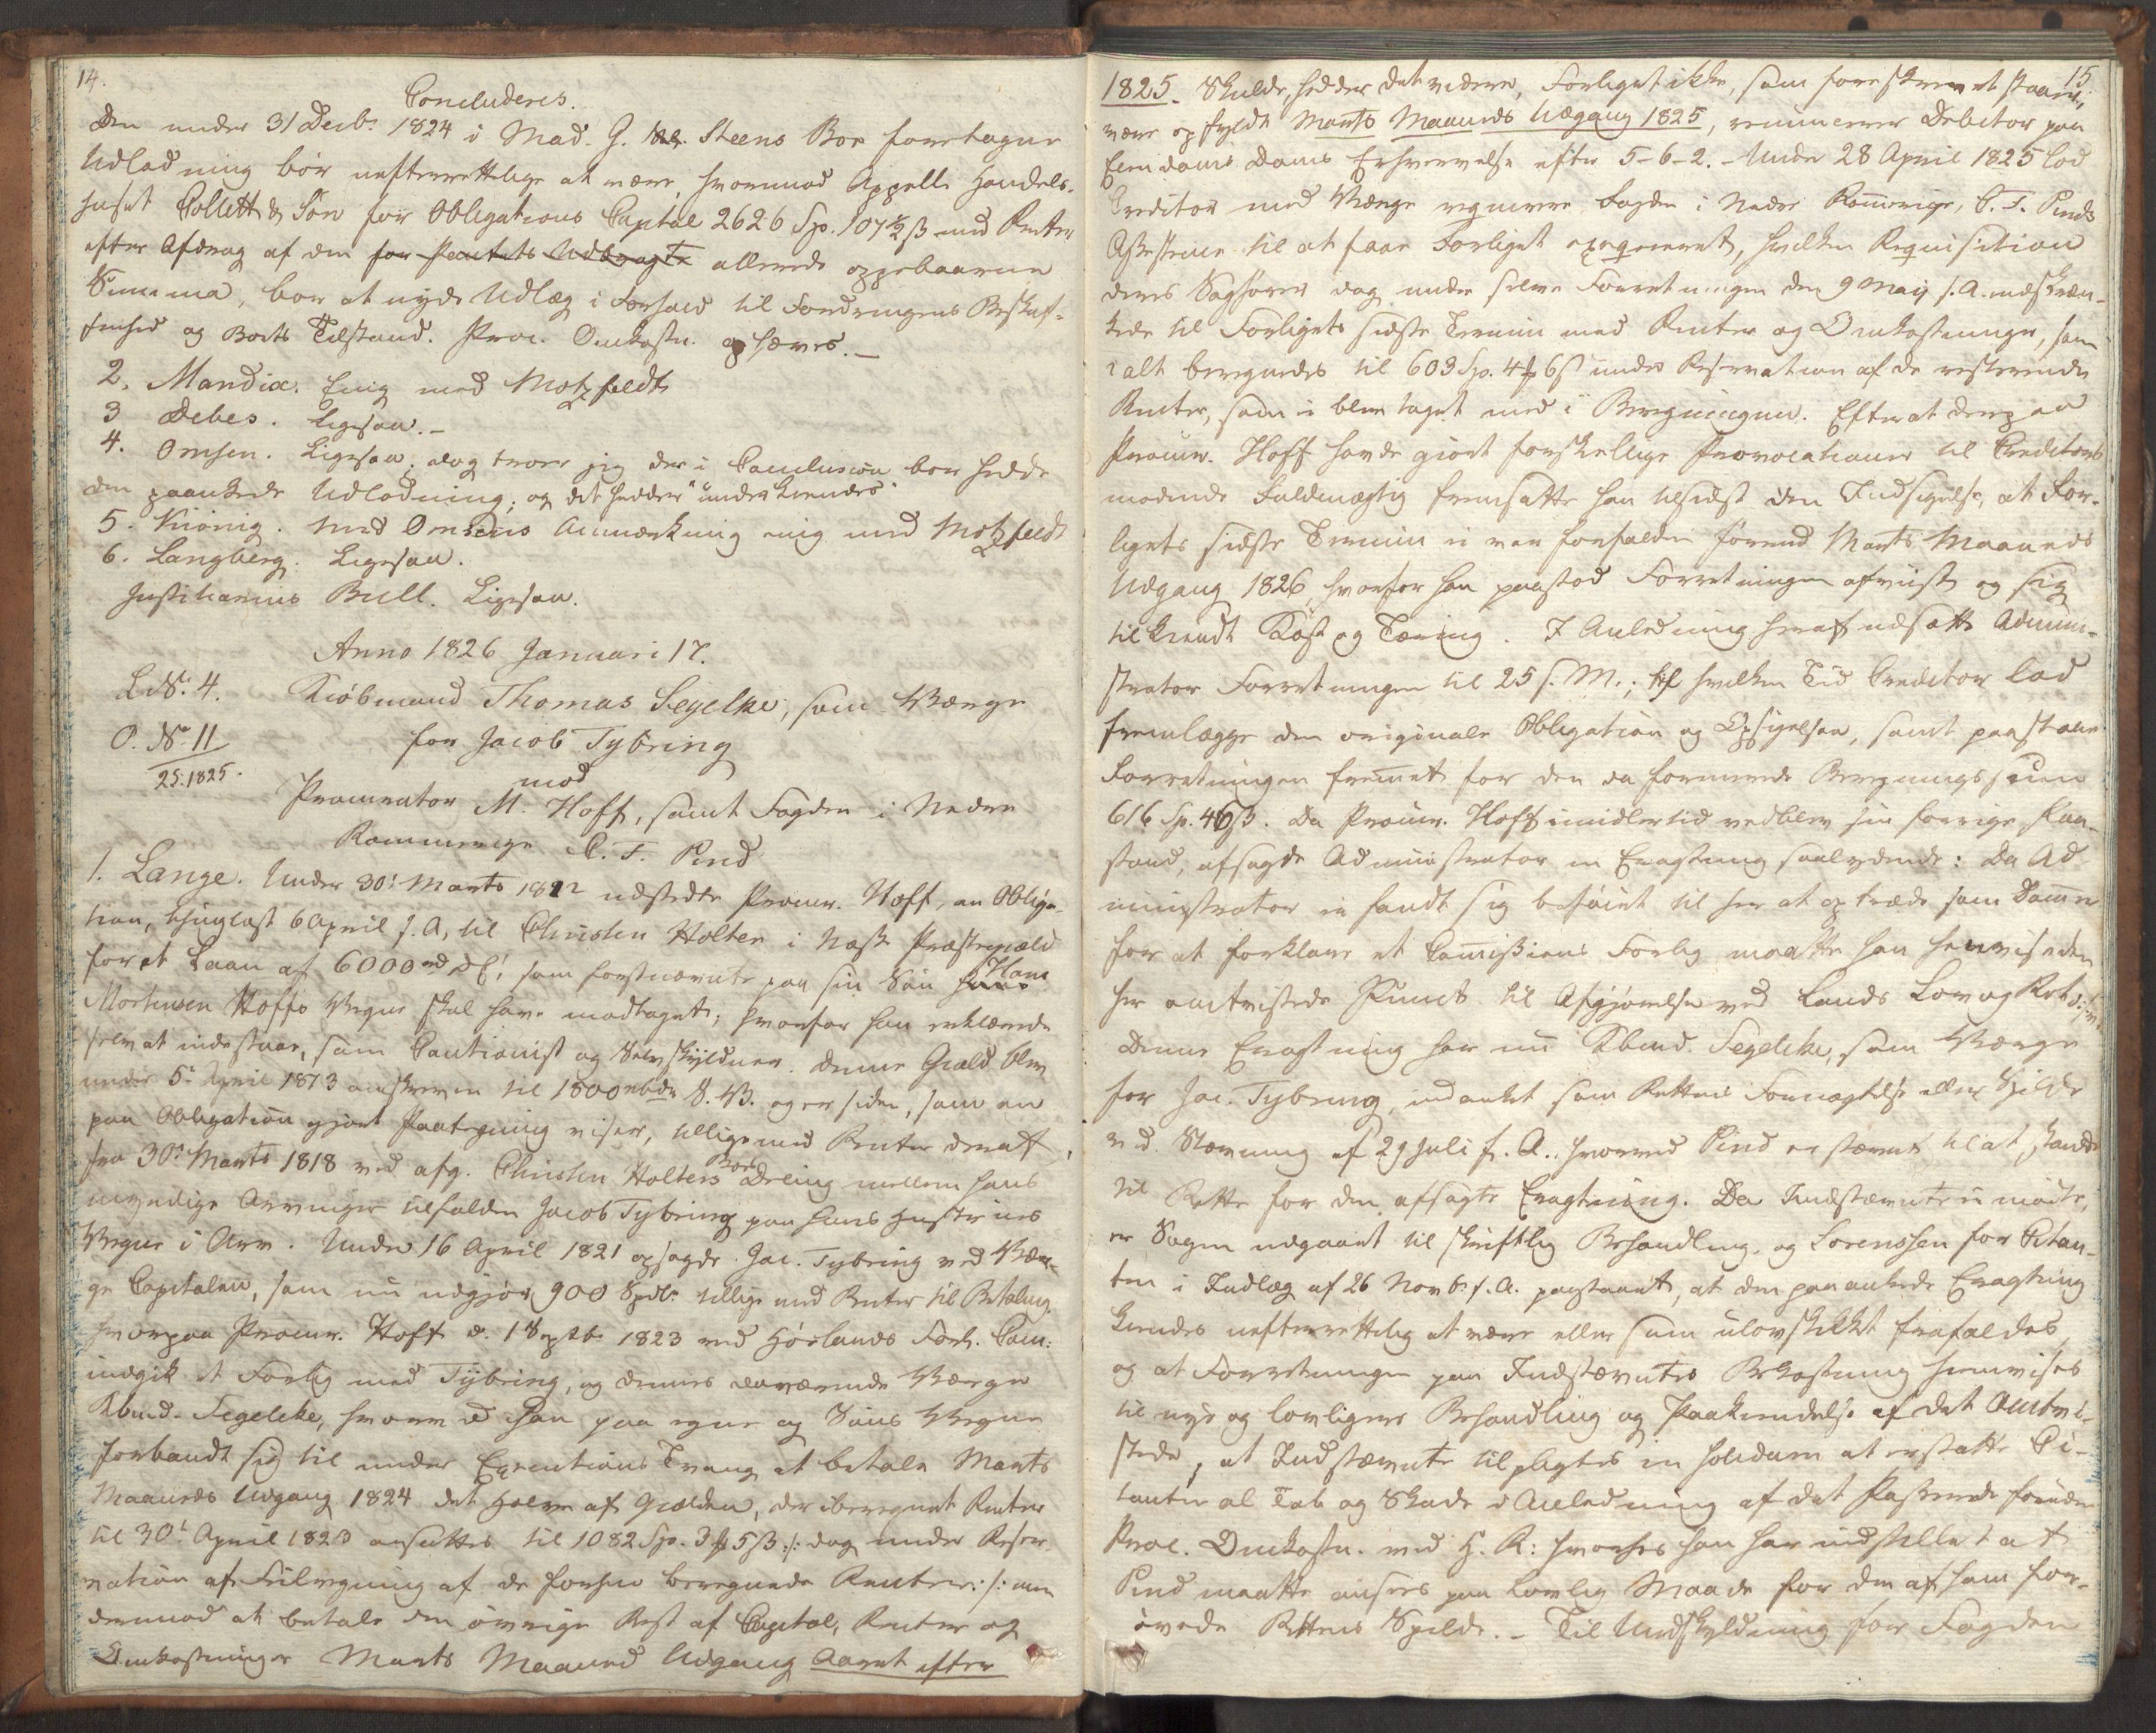 14.
Concluderes.
Den under 31 Decbr 1824 i Mad. G. M. Steens Boe foretagne
Udlodning bør uefterrettelige at være, hvorimod Appell. Handels-
huset Collett & Søn for Obligations Capital 2626 Sp. 107½ ß med Renter
efter Afdrag af den for Pantets Udbragte allerede oppebaarne
Summa, bør at nyde Udlæg i Forhold til Fordringens Beskaf-
fenhed og Boets Tilstand. Proc. Omkostn. ophæves.—
2. Mandix. Enig med Motzfeldt
3 Debes. Ligesaa.—
4. Omsen. Ligesaa, dog troer jeg der i Conclusion bør hedde
den paaankede Udlodning; og det hedder "underkiendes"
5. Kiønig. Med Omsens Anmærkning enig med Motzfeldt
6. Langberg. Ligesaa.
Justitiarius Bull. Ligesaa.
Anno 1826 Januari 17.
L. No. 4. Kiøbmand Thomas Segelke, som Værge
O. No. 11 for Jacob Tybring
25.1825. mod
Procurator M. Hoff, samt Fogden i Nedre
Rommerige C. F. Pind
1. Lange. Under 30te Marts 1812 udstedte Procur. Hoff, en Obliga-
tion, thinglæst 6 April s. A, til Christen Holter i Næss Præstegield
for et Laan af 6000 rd DC, som forstnævnte paa sin Søn Hans
Mortensen Hoffs Vegne skal have modtaget; hvorfor han erklærede
selv at indestaae, som Cautionist og Selvskyldner. Denne Gield blev
under 5te April 1813 omskreven til 1800 rbdr S. V. og er siden, som en
paa Obligation giort Paategning viser, tilligemed Renter deraf,
fra 30te Marts 1818 ved afg. Christen Holters Boes Deling mellem hans
myndige Arvinger tilfalden Jacob Tybring paa hans Hustrues
Vegne i Arv. Under 16 April 1821 opsagde Jac. Tybring ved Vær-
ge Capitalen, som nu udgjør 900 Spdlr tillige med Renter til Betaling.
hvorpaa Procur. Hoff d. 1 Septbr 1823 ved Hørlands Forl. Com:
indgik et Forlig med Tybring, og dennes daværende Værge
Kbmd. Segelcke, hvorved han paa egne og Søns Vegne
forbandt sig til under Executions Tvang at betale Marts
Maaneds Udgang 1824 det Halve af Gielden, der iberegnet Renter
til 30te April 1823 ansattes til 1082 Sp. 3 5 ß :/: dog under Reser-
vation af Feilregning af de forhen beregnede Renter :/: men
derimod at betale den øvrige Rest af Capital, Renter og
Omkostninger Marts Maaned Udgang Aaret efter
15
1825. Skulde, hedder det videre, Forliget ikke, som foreskrevet staaer,
være opfyldt Marts Maaneds Udgang 1825, renuncerer Debitor paa
Eiendoms Doms Erhvervelse efter 5-6-2. - Under 28 April 1825 lod
Creditor med Værge reqvirere Fogden i Nedre Romerige, C. F. Pinds
Assistence til at faae Forliget exeqveret, hvilken Reqvisition
deres Sagfører dog under selve Forretningen den 9 May s. A. indskræn-
kede til Forligets sidste Termin med Renter og Omkostninger, som
i alt beregnedes til 603 Sp. 4 6 ß under Reservation af de resterende
Renter, som ei blev taget med i Beregningen. Efter at derpaa
Procur. Hoff havde giort forskellige Provocationer til Creditors
mødende Fuldmægtig fremsatte han tilsidst den Indsigelse, at For-
ligets sidste Termin ei var forfalden førend Marts Maaneds
Udgang 1826, hvorfor han paastod Forretningen afviist og sig
tilkiendt Kost og Tæring. I Anledning heraf udsatte Admini-
strator Forretningen til 25 s. M.; til hvilken Tid Creditor lod
fremlægge den originale Obligation og Opsigelsen, samt paastod
Forretningen fremmet for den da formerede Beregningssum
616 Sp. 46 ß. Da Procur. Hoff imidlertid vedblev sin forrige Paa-
stand, afsagde Administrator en Eragtning saalydende: Da Ad-
ministrator ei fandt sig beføiet til her at optræde som Dommer
for at forklare et Comissions Forlig maatte han henvise den
her omtvistede Punct til Afgjørelse ved Lands Lov og Ret
Denne Eragtning har nu Kbmd. Segelcke, som Værge
for Jac. Tybring, indanket som Rettens Fornægtelse eller Spilde
ved Stævning af 29 Juli f. A., hvorved Pind er stævnet til at stande
til Rette for den afsagte Eragtning. Da Indstævnte ei mødte,
er Sagen udgaaet til skriftlig Behandling, og Sorenssen for Citan-
ten i Indlæg af 26 Novbr f. A. paastaaet, at den paaankede Eragtning
kiendes uefterrettelig at være eller som ulovskikket frafaldes
og at Forretningen paa Indstævntes Bekostning hiemvises
til nye og lovligere Behandling og Paakiendelse af det Omtvi-
stede, at Indstævnte tilpligtes in solidum at erstatte Ci-
tanten al Tab og Skade i Anledning af det Passerede foruden
Proc. Omkostn. ved H. R: hvorhos han har indstillet at
Pind maatte ansees paa lovlig Maade for den af ham for-
øvede Rettens Spilde. - Til Undskyldning for Fogden